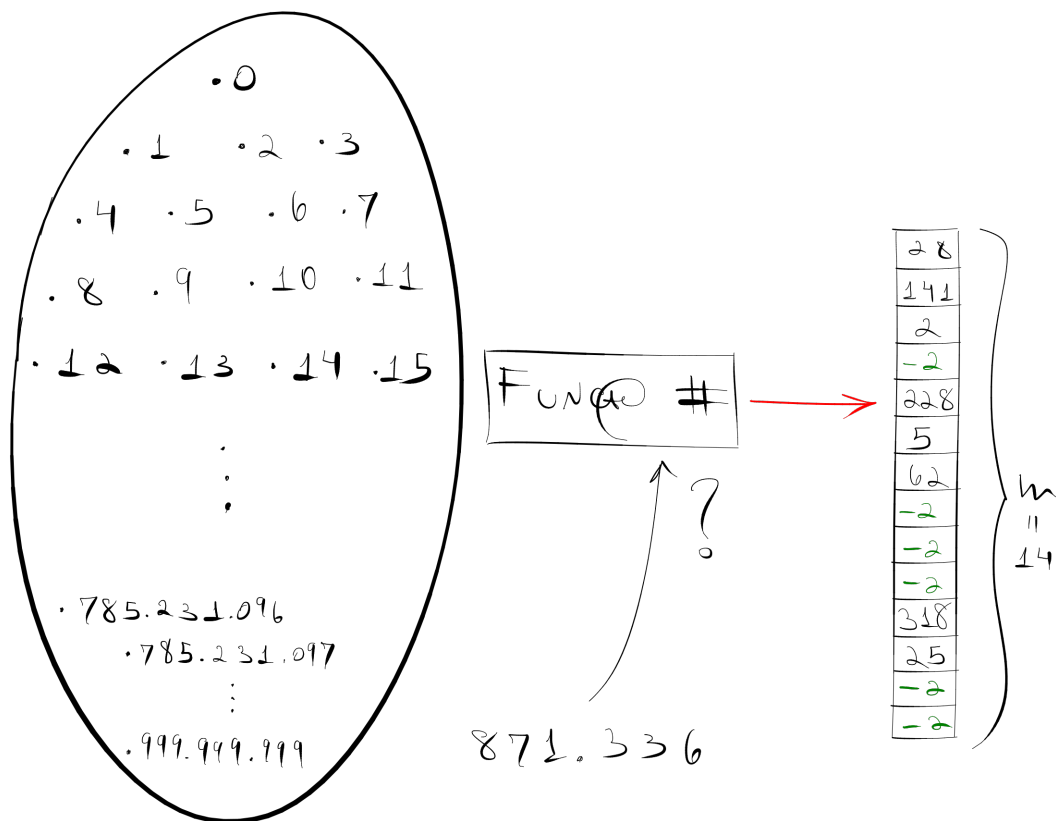 .0
.1 .2 .3
.4 .5 .6 .7
.8 .9 .10 .11
.12 .13 .14 .15
.785.231.096
.785.231.097
.999.999.999
Função #
?
871.336
28
141
2
-2
228
5
62
-2
-2
-2
318
25
-2
-2
m
=
14